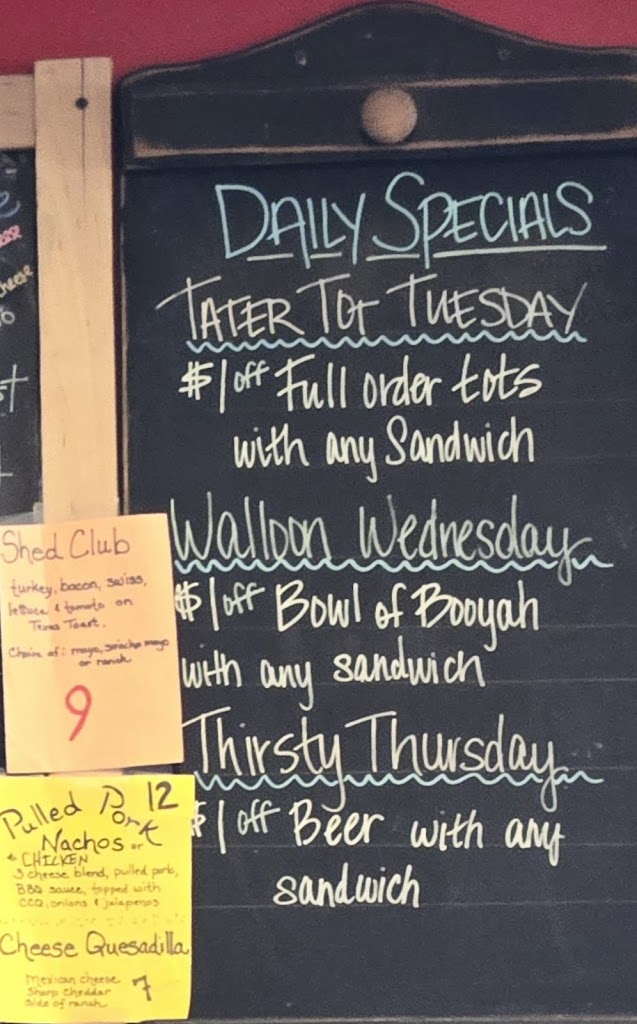 DAILY SPECIALS
TATER TOT TUESDAY
$1 off Full order tots
with any Sandwich
Walloon Wednesday
$1 off Bowl of Booyah
with any sandwich
Thirsty Thursday
$1 off Beer with any
sandwich
Shed Club
turkey, bacon, swiss,
lettuce & tomato on
Texas Toast.
Choice of: mayo, sriracha mayo
or ranch
9
Pulled Pork 12
Nachos or
CHICKEN
3 cheese blend, pulled pork,
BBQ sauce, topped with
CCQ, onions & jalapenos
Cheese Quesadilla
Mexican cheese
Sharp cheddar
side of ranch
7
cheese